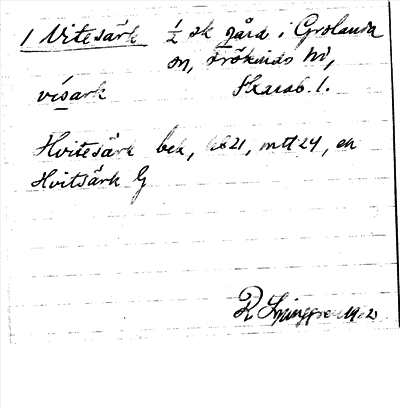 1 Vitesärk ½ sk gård i Grolanda
sn, Frökinds hd,
vísark Skarab. l.
Hvitesärk bek, mtt 24, en
Hvitsärk G
R. Ljunggren